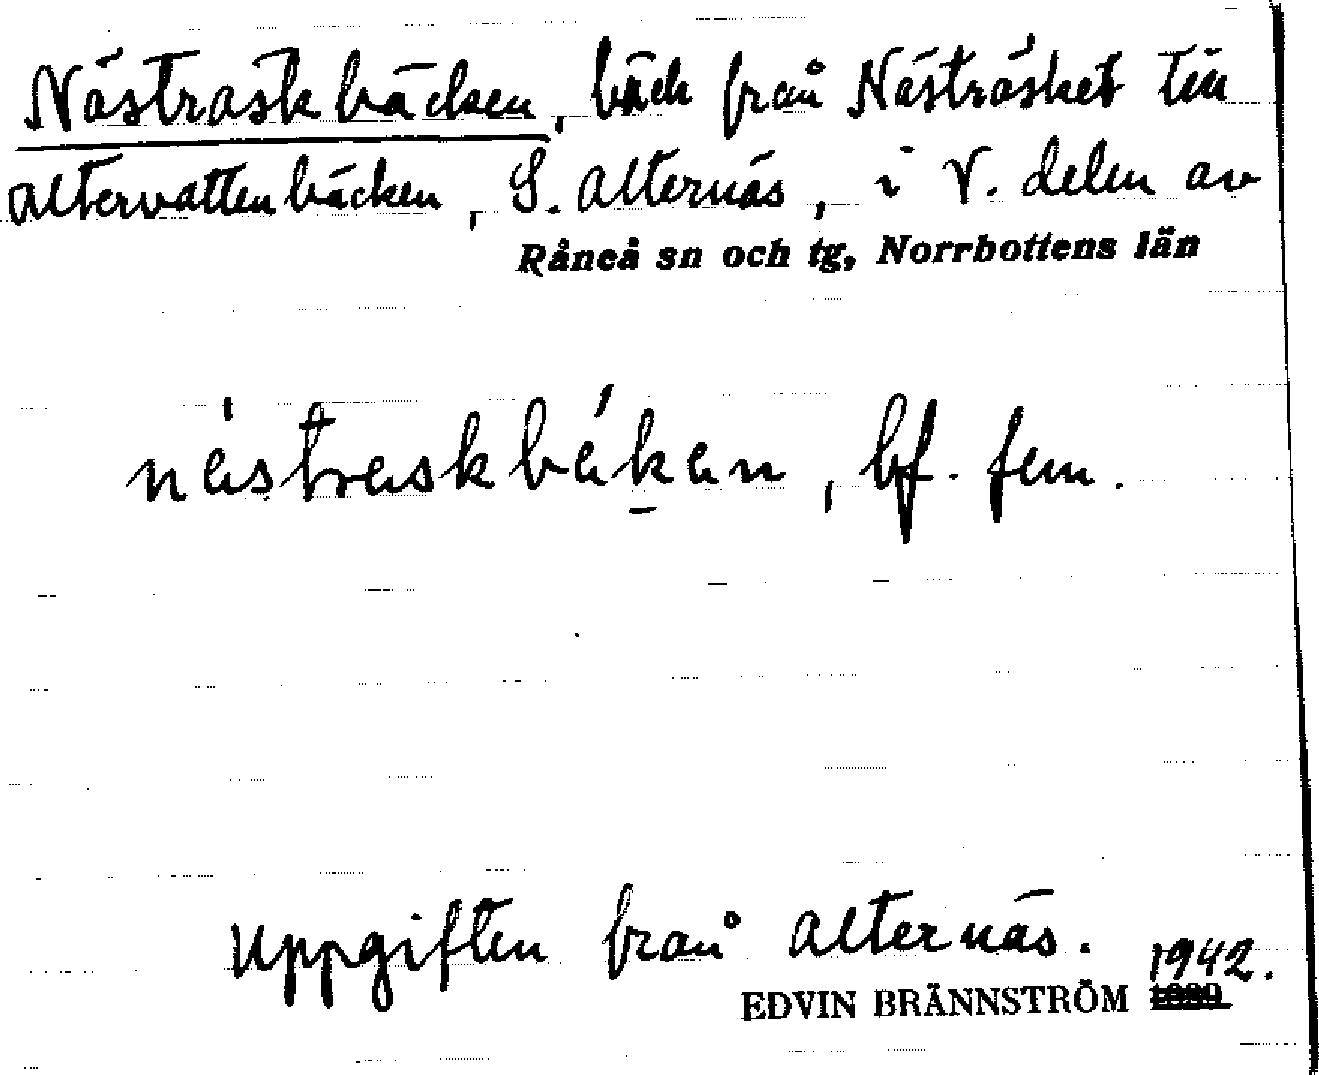 Nästräskbäcken, bäck från Nästräsket till
Altervattenbäcken, S. Alternäs, i V. delen av
Råneå sn och tg, Norrbottens län
nästraskbäkan, bf. fem.
Uppgiften från Alternäs.
1942.
EDVIN BRÄNNSTRÖM